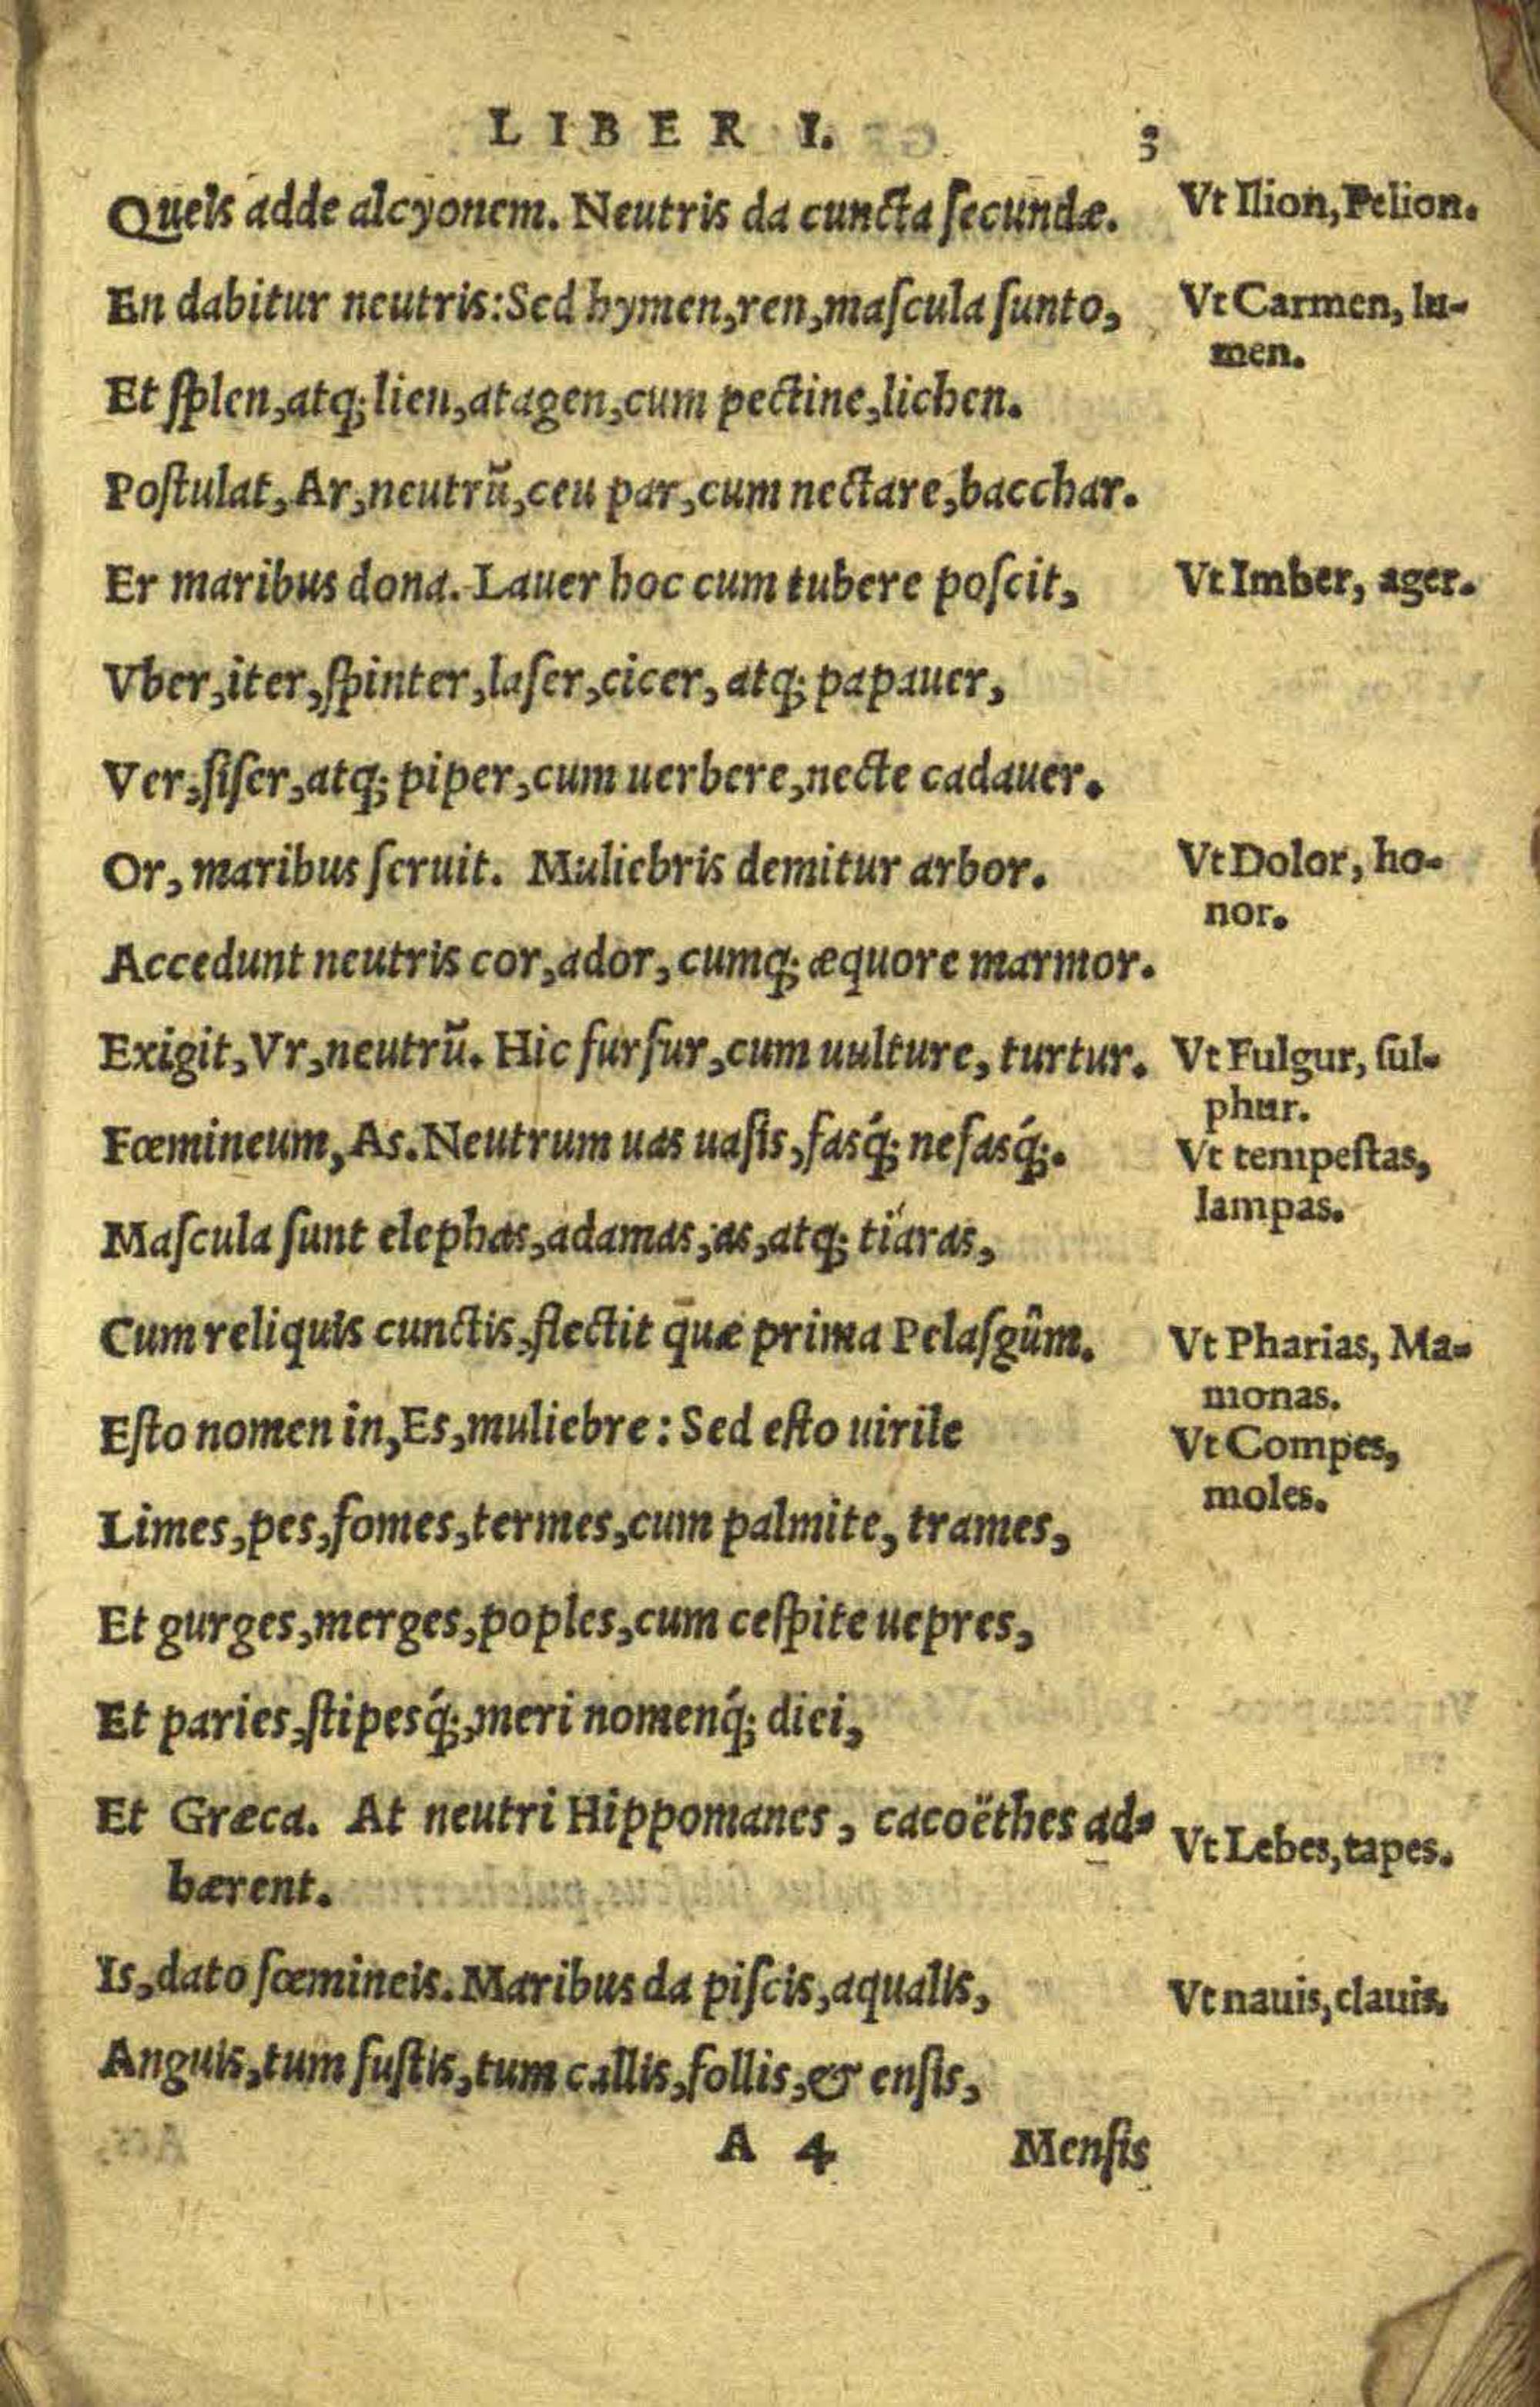 LIBER I. 3
Queis adde alcyonem. Neutris da cuncta ſecundæ.
Vt Ilion, Pelion.
En dabitur neutris: Sed hymen, ren, maſcula ſunto,
Vt Carmen, lu-
men.
Et ſplen, atq; lien, atagen, cum pectine, lichen.
Poſtulat, Ar, neutrũ, ceu par, cum nectare, bacchar.
Er maribus dona. Lauer hoc cum tubere poſcit,
Vt Imber, ager.
Vber, iter, ſpinter, laſer, cicer, atq; papauer,
Ver, ſiſer, atq; piper, cum uerbere, necte cadauer.
Or, maribus ſeruit. Muliebris demitur arbor.
Vt Dolor, ho-
nor.
Accedunt neutris cor, ador, cumq; æquore marmor.
Exigit, Vr, neutrũ. Hic furfur, cum uulture, turtur.
Vt Fulgur, ſul-
phur.
Fœmineum, As. Neutrum uas uaſis, fasq́; nefasq́;.
Vt tempeſtas,
lampas.
Maſcula ſunt elephas, adamas, as, atq; tiaras,
Cum reliquis cunctis, flectit quæ prima Pelaſgûm.
Vt Pharias, Ma-
monas.
Eſto nomen in, Es, muliebre: Sed eſto uirile
Vt Compes,
moles.
Limes, pes, fomes, termes, cum palmite, trames,
Et gurges, merges, poples, cum ceſpite uepres,
Et paries, ſtipesq́;, meri nomenq́; diei,
Et Græca. At neutri Hippomanes, cacoëthes ad-
hærent.
Vt Lebes, tapes.
Is, dato fœmineis. Maribus da piſcis, aqualis,
Vt nauis, clauis.
Anguis, tum fuſtis, tum callis, follis, & enſis,
A 4 Menſis